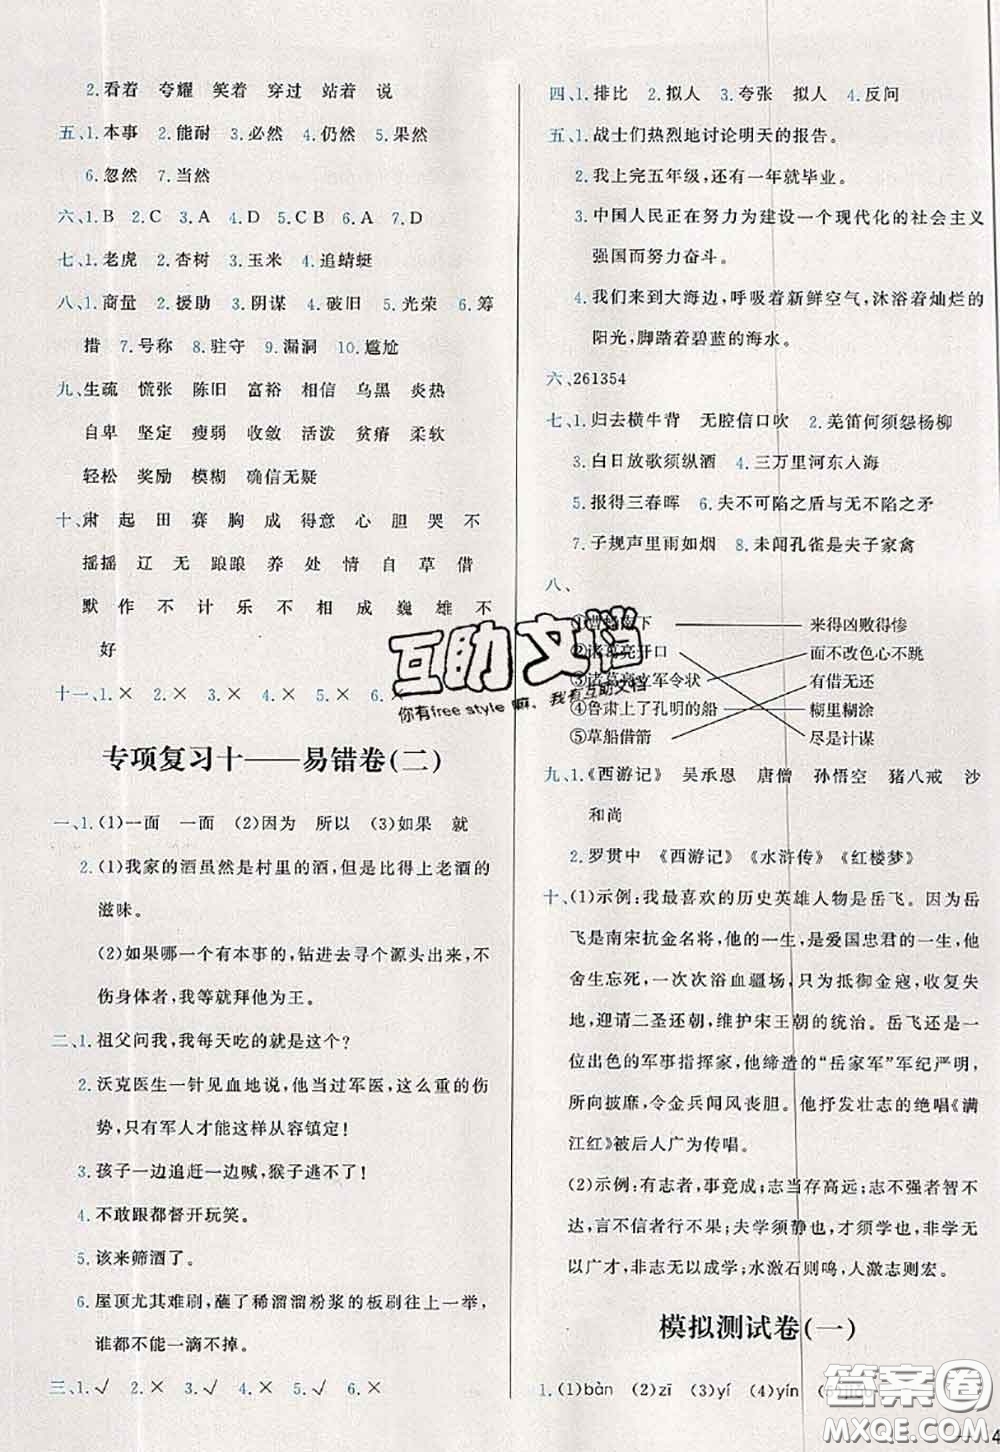 2.看着　夸耀　笑着　穿过　站着　说
五、1.本事　2.能耐　3.必然　4.仍然　5.果然
6.忽然　7.当然
六、1.B　2.C　3.A　4.D　5.CB　6.A　7.D
七、1.老虎　2.杏树　3.玉米　4.追蜻蜓
八、1.商量　2.援助　3.阴谋　4.破旧　5.光荣　6.筹
措　7.号称　8.驻守　9.漏洞　10.尴尬
九、生疏　慌张　陈旧　富裕　相信　乌黑　炎热
自卑　坚定　瘦弱　收敛　活泼　贫瘠　柔软
轻松　奖励　模糊　确信无疑
十、肃　起　田　赛　胸　成　得意　心　胆　哭　不
摇摇　辽　无　踉踉　养　处　情　自　草　借
默　作　不　计　乐　不　相　成　巍　雄　不
好
十一、1.×　2.×　3.×　4.×　5.×　6.×
专项复习十——易错卷(二)
一、1.(1)一面　一面　(2)因为　所以　(3)如果　就
2.(1)我家的酒虽然是村里的酒,但是比得上老酒的
滋味。
(2)如果哪一个有本事的,钻进去寻个源头出来,不
伤身体者,我等就拜他为王。
二、1.祖父问我,我每天吃的就是这个?
2.沃克医生一针见血地说,他当过军医,这么重的伤
势,只有军人才能这样从容镇定!
3.孩子一边追赶一边喊,猴子逃不了!
4.不敢跟都督开玩笑。
5.该来筛酒了。
6.屋顶尤其难刷,蘸了稀溜溜粉浆的板刷往上一举,
谁都不能一滴不掉。
三、1.√　2.×　3.√　4.×　5.√　6.×
四、1.排比　2.拟人　3.夸张　拟人　4.反问
五、1.战士们热烈地讨论明天的报告。
2.我上完五年级,还有一年就毕业。
3.中国人民正在努力为建设一个现代化的社会主义
强国而努力奋斗。
4.我们来到大海边,呼吸着新鲜空气,沐浴着灿烂的
阳光,脚踏着碧蓝的海水。
六、261354
七、1.归去横牛背　无腔信口吹　2.羌笛何须怨杨柳
3.白日放歌须纵酒　4.三万里河东入海
5.报得三春晖　6.夫不可陷之盾与无不陷之矛
7.子规声里雨如烟　8.未闻孔雀是夫子家禽
八、
①曹操南下　来得凶败得惨
②诸葛亮开口　面不改色心不跳
③诸葛亮立军令状　有借无还
④鲁肃上了孔明的船　糊里糊涂
⑤草船借箭　尽是计谋
九、1.《西游记》　吴承恩　唐僧　孙悟空　猪八戒　沙
和尚
2.罗贯中　《西游记》《水浒传》《红楼梦》
十、(1)示例:我最喜欢的历史英雄人物是岳飞。因为岳
飞是南宋抗金名将,他的一生,是爱国忠君的一生,他
舍生忘死,一次次浴血疆场,为抵御金寇,收复失
地,迎请二圣还朝,维护宋王朝的统治。岳飞还是一
位出色的军事指挥家,他缔造的“岳家军”军纪严明,
所向披靡,令金兵闻风丧胆。他抒发壮志的绝唱《满
江红》被后人广为传唱。
(2)示例:有志者,事竟成;志当存高远;志不强者智不
达,言不信者行不果;夫学须静也,才须学也,非学无
以广才,非志无以成学;水激石则鸣,人激志则宏。
模拟测试卷(一)
1.(1)bàn　(2)zī　(3)yí　(4)yín
互助文档
你有free style 嘛、我有互助文档
答案圈
MXQE.COM